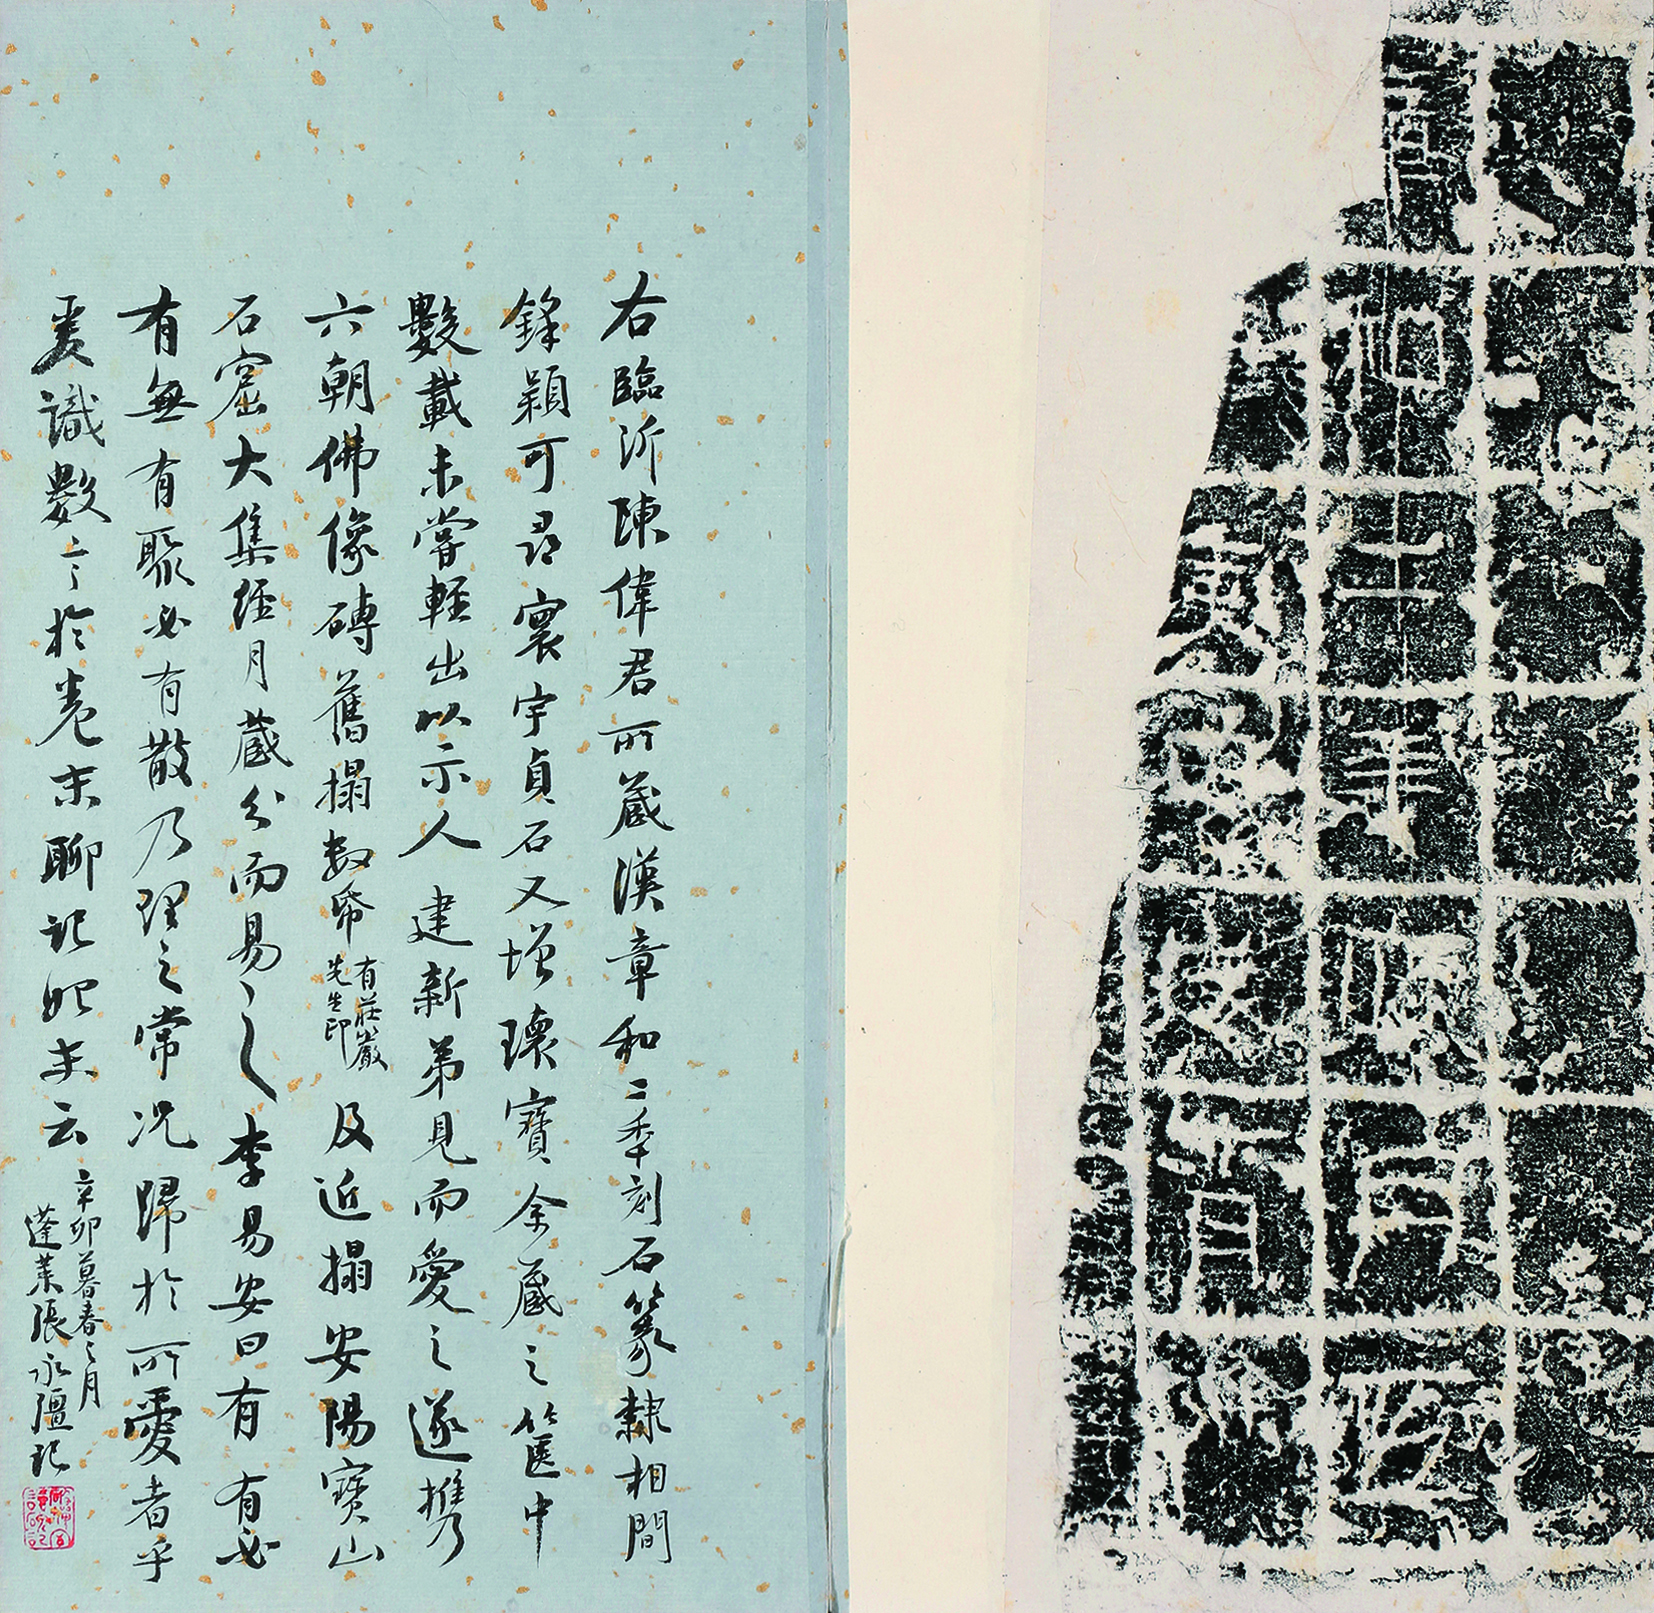 和二年
右臨沂陳偉君所藏漢章和二秊刻石篆隸相間
鋒穎可尋寰宇貞石又增瓌寶余藏之篋中
數載未嘗輕出以示人建新弟見而愛之遂携
六朝佛像磚舊搨数帋有莊嚴先生印及近搨安陽寶山
石窟大集經月藏分而易之李易安曰有有必
有無有聚必有散乃理之常况歸於所愛者乎
爰識數言於卷末聊記始末云
辛卯暮春之月
蓬萊張永彊記